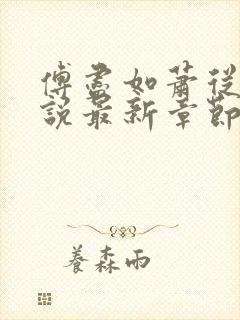 傅盡如蕭從
說最新章節
養森雨